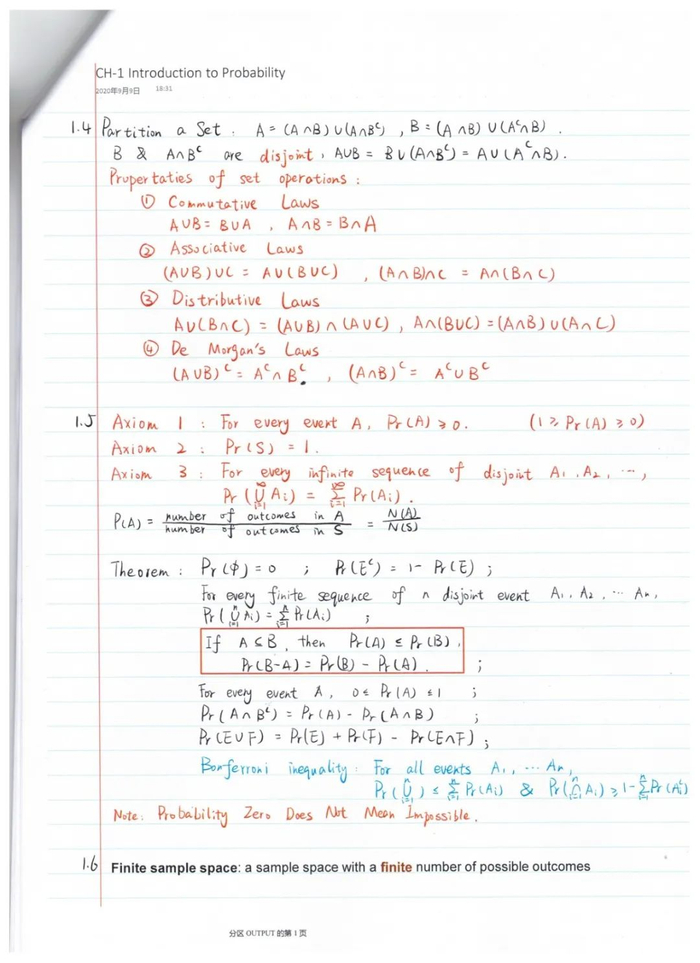 CH-1 Introduction to Probability
2020年9月9日 18:31
1.4 Partition a Set : A = (A∩B)∪(A∩Bᶜ) , B = (A∩B)∪(Aᶜ∩B) .
B & A∩Bᶜ are disjoint , A∪B = B∪(A∩Bᶜ) = A∪(Aᶜ∩B) .
Propertaties of set operations :
① Commutative Laws
A∪B = B∪A , A∩B = B∩A
② Associative Laws
(A∪B)∪C = A∪(B∪C) , (A∩B)∩C = A∩(B∩C)
③ Distributive Laws
A∪(B∩C) = (A∪B)∩(A∪C) , A∩(B∪C) = (A∩B)∪(A∩C)
④ De Morgan's Laws
(A∪B)ᶜ = Aᶜ∩Bᶜ , (A∩B)ᶜ = Aᶜ∪Bᶜ
1.5 Axiom 1 : For every event A, Pr(A) ≥ 0. (1 ≥ Pr(A) ≥ 0)
Axiom 2 : Pr(S) = 1.
Axiom 3 : For every infinite sequence of disjoint A₁, A₂, ⋯,
Pr(⋃_{i=1}^{∞} Aᵢ) = ∑_{i=1}^{∞} Pr(Aᵢ) .
P(A) = number of outcomes in A / number of outcomes in S = N(A) / N(S)
Theorem : Pr(∅) = 0 ; Pr(Eᶜ) = 1 - Pr(E) ;
For every finite sequence of n disjoint event A₁, A₂, ⋯ Aₙ,
Pr(⋃_{i=1}^{n} Aᵢ) = ∑_{i=1}^{n} Pr(Aᵢ) ;
If A ⊆ B, then Pr(A) ≤ Pr(B).
Pr(B-A) = Pr(B) - Pr(A). ;
For every event A, 0 ≤ Pr(A) ≤ 1 ;
Pr(A∩Bᶜ) = Pr(A) - Pr(A∩B) ;
Pr(E∪F) = Pr(E) + Pr(F) - Pr(E∩F) ;
Bonferroni inequality : For all events A₁, ⋯ Aₙ,
Pr(⋃_{i=1}^{n}) ≤ ∑_{i=1}^{n} Pr(Aᵢ) & Pr(⋂_{i=1}^{n} Aᵢ) ≥ 1 - ∑_{i=1}^{n} Pr(Aᵢᶜ)
Note: Probability Zero Does Not Mean Impossible.
1.6 Finite sample space: a sample space with a finite number of possible outcomes
分区 OUTPUT 的第 1 页